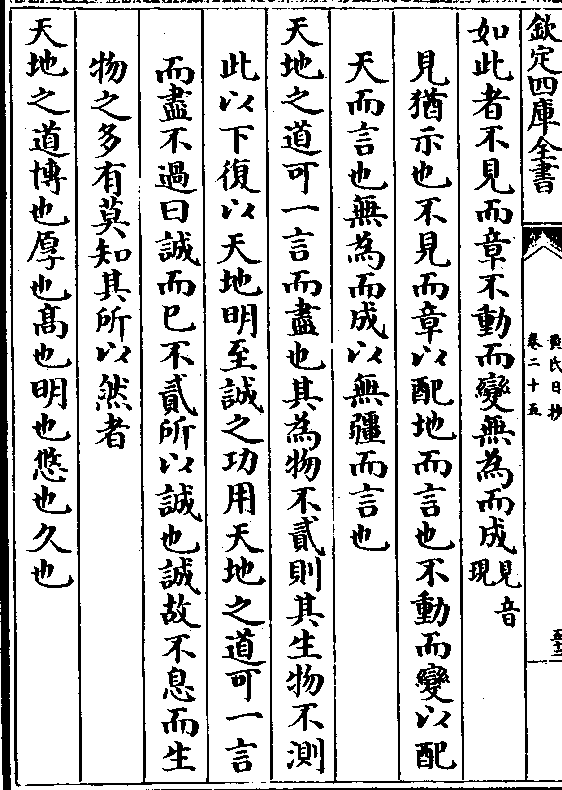 欽定四庫全書
黃氏日抄
卷二十五
如此者不見而章不動而變無為而成見音現
見猶示也不見而章以配地而言也不動而變以配
天而言也無為而成以無疆而言也
天地之道可一言而盡也其為物不貳則其生物不測
此以下復以天地明至誠之功用天地之道可一言
而盡不過曰誠而已不貳所以誠也誠故不息而生
物之多有莫知其所以然者
天地之道博也厚也高也明也悠也久也